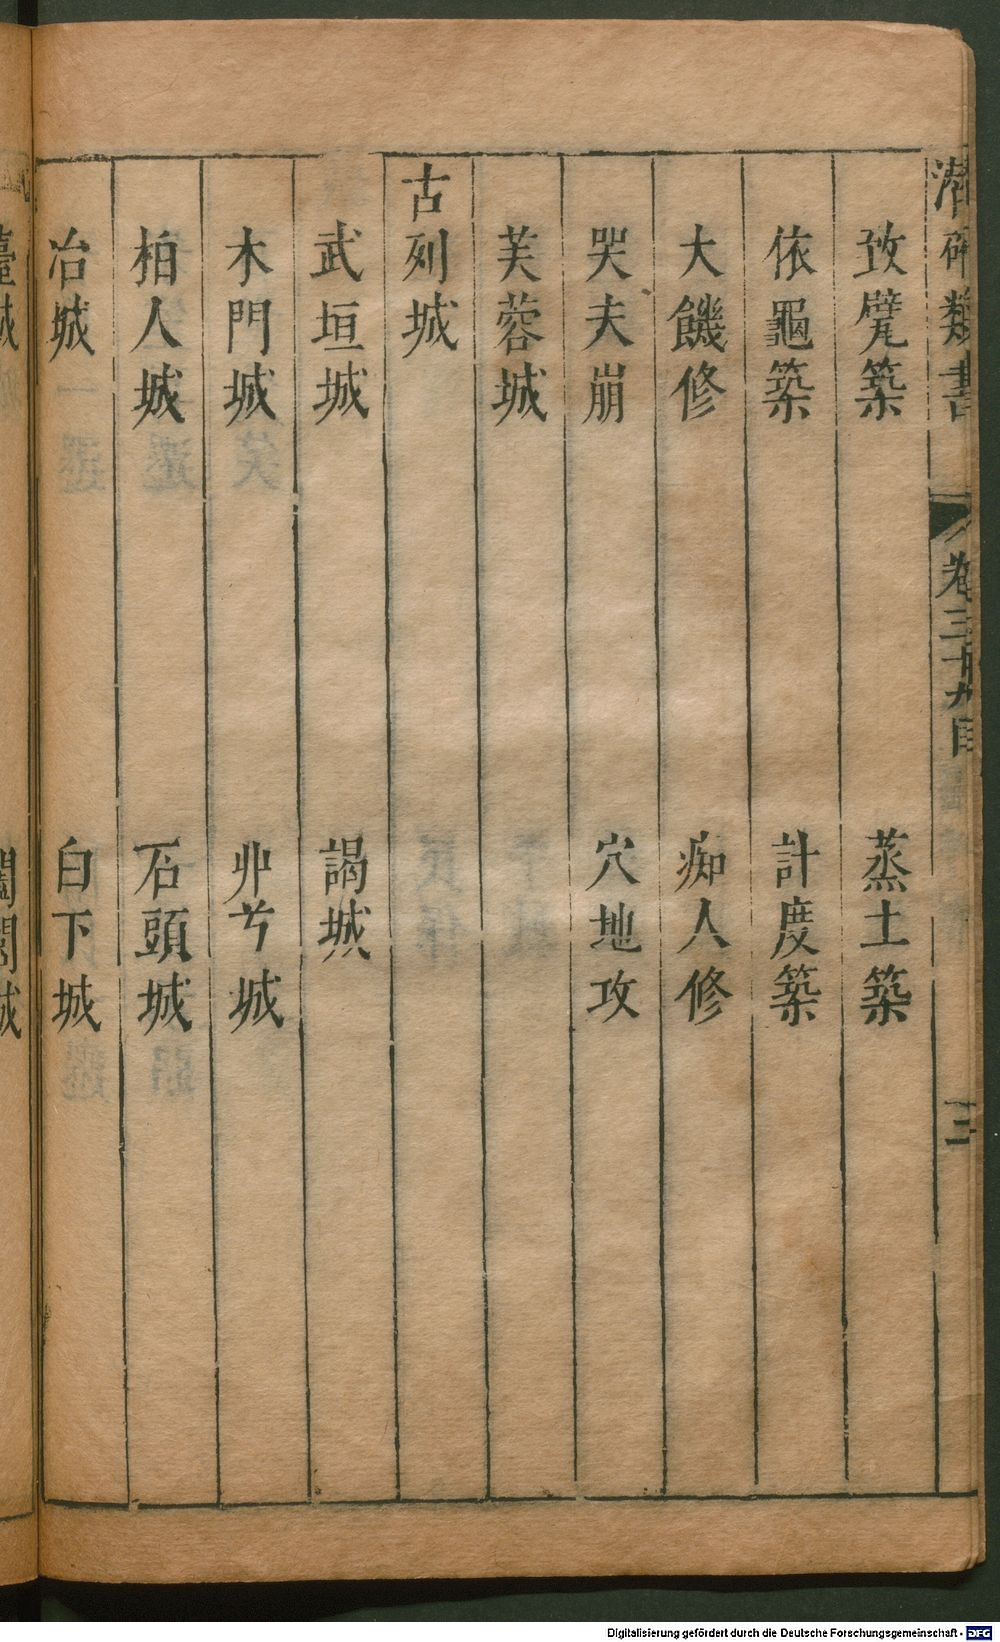 潛確類書
卷三十九目
三
攻甓築 蒸土築
依龜築 計度築
大饑修 痴人修
哭夫崩 穴地攻
芙蓉城
古列城
武垣城 謁城
木門城 丱兮城
柏人城 石頭城
冶城 白下城
臺城 闔閭城
Digitalisierung gefördert durch die Deutsche Forschungsgemeinschaft - DFG